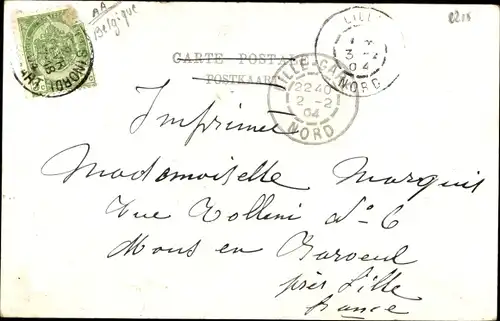 AA
Belgique
2215
CARTE POSTALE
POSTKAART
LILLE
3 -2
04
NORD
LILLE-GARE
22 40
2 -2
04
NORD
(NORD)
Imprimé
Mademoiselle Marquis
Rue Rollini N° 6
Mons en Baroeul
près Lille
France